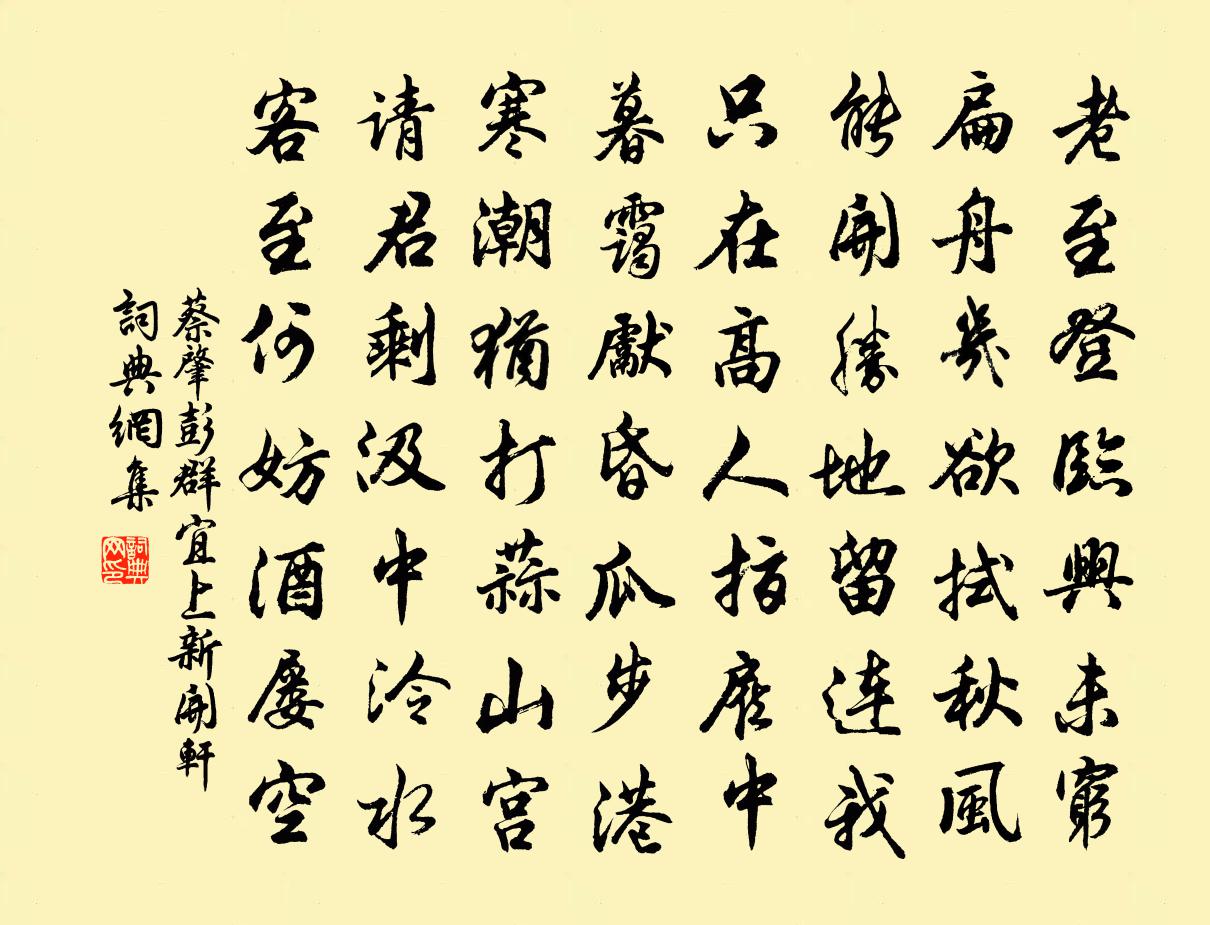 老至登臨興未窮
扁舟幾欲拭秋風
能開勝地留連我
只在高人指雇中
暮靄獻昏瓜步港
寒潮猶打蒜山宮
请君剩汲中泠水
客至何妨酒屡空
蔡肇彭群宜上新開軒
詞典網集
詞典网印